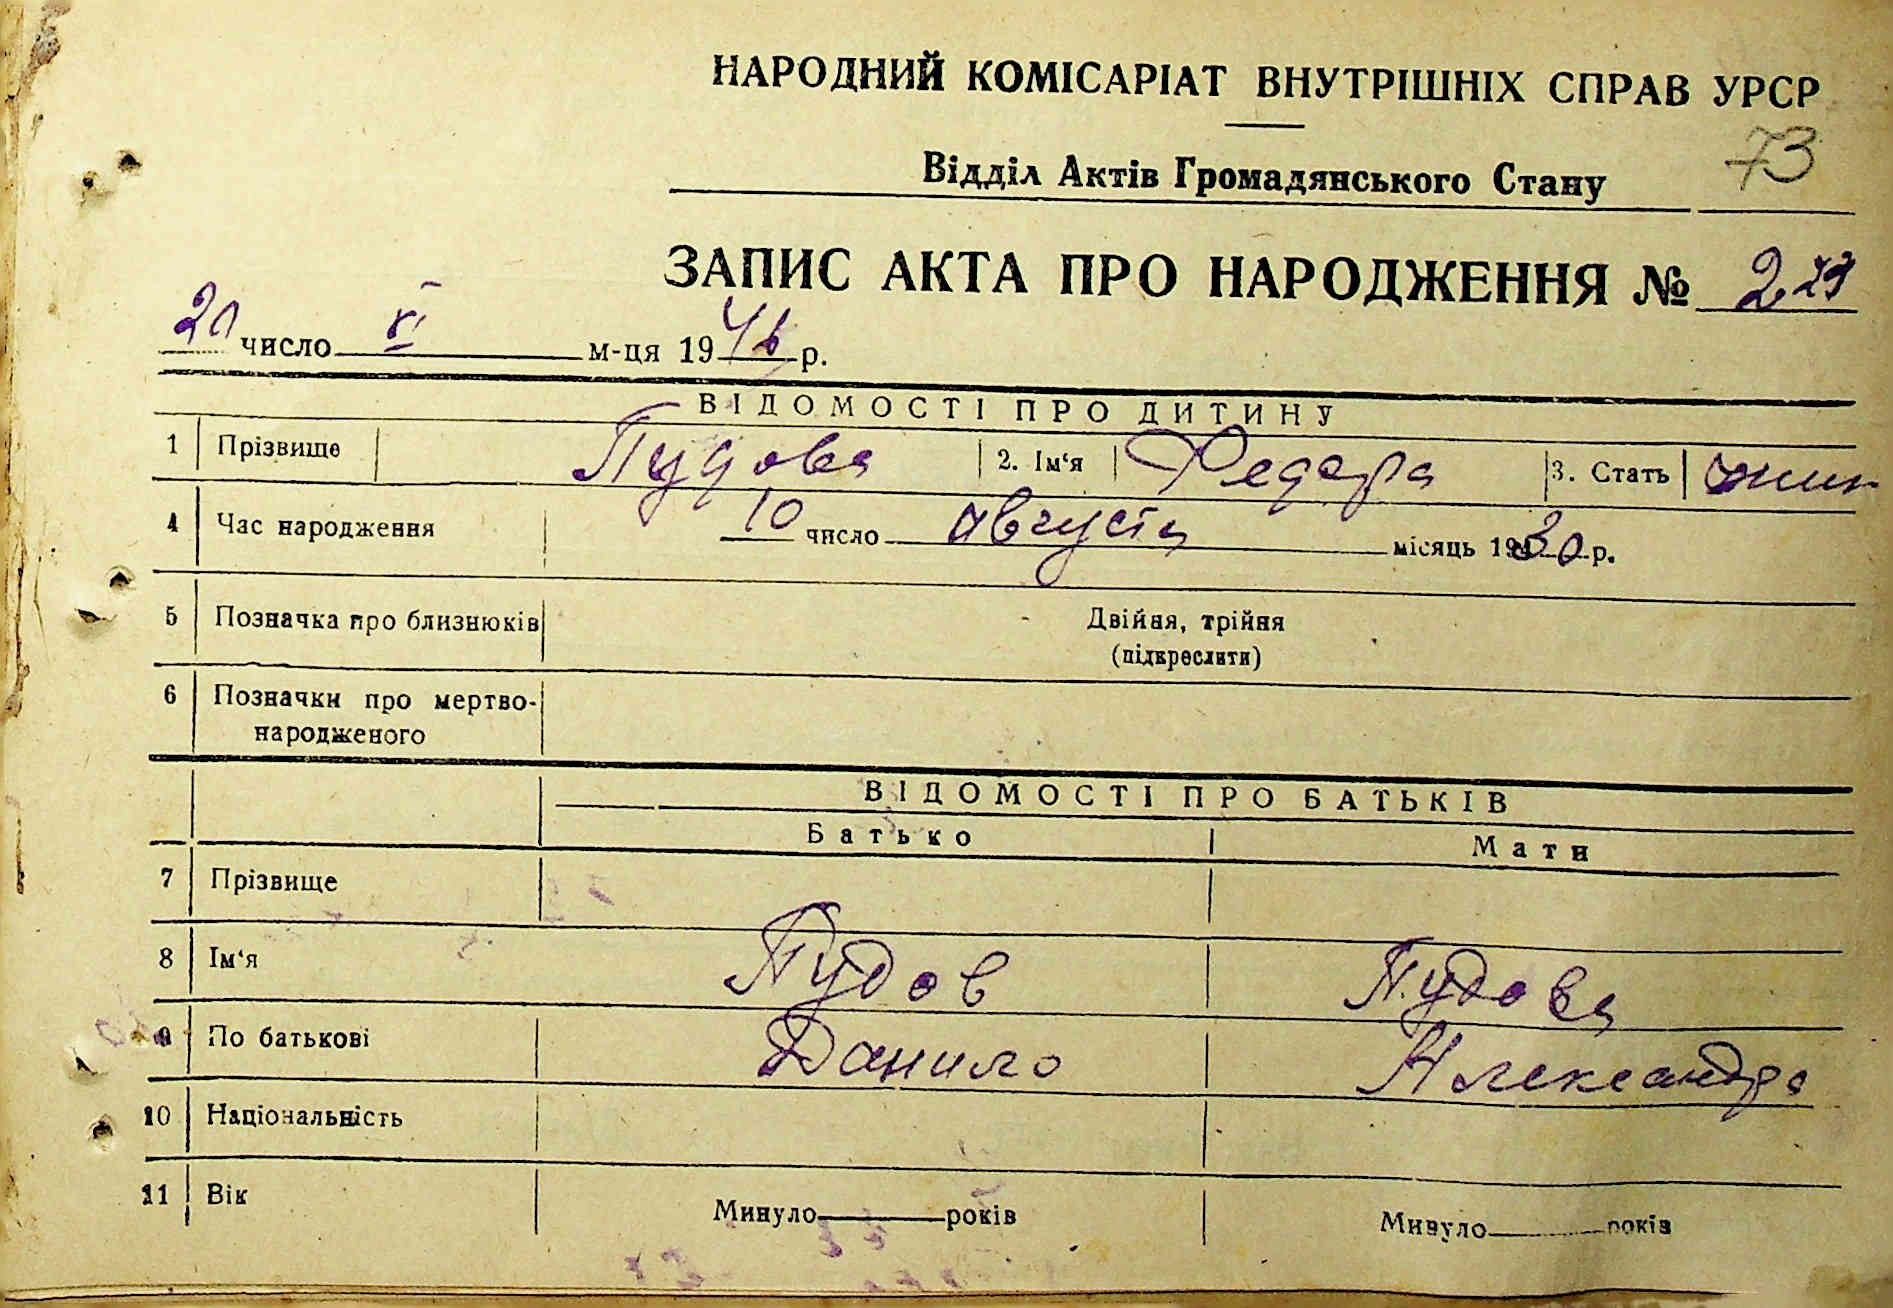 НАРОДНИЙ КОМІСАРІАТ ВНУТРІШНІХ СПРАВ УРСР
Відділ Актів Громадянського Стану 73
ЗАПИС АКТА ПРО НАРОДЖЕННЯ № 229
20 число VI м-ця 1946 р.
ВІДОМОСТІ ПРО ДИТИНУ
1 Прізвище Пудова 2. Ім'я Федора 3. Стать
4 Час народження 10 число августа місяць 1930 р.
5 Позначка про близнюків Двійня, трійня
(підкреслити)
6 Позначки про мертво-
народженого
ВІДОМОСТІ ПРО БАТЬКІВ
Батько Мати
7 Прізвище
8 Ім'я Пудов Пудова
9 По батькові Данило Александра
10 Національність
11 Вік Минуло років Минуло років